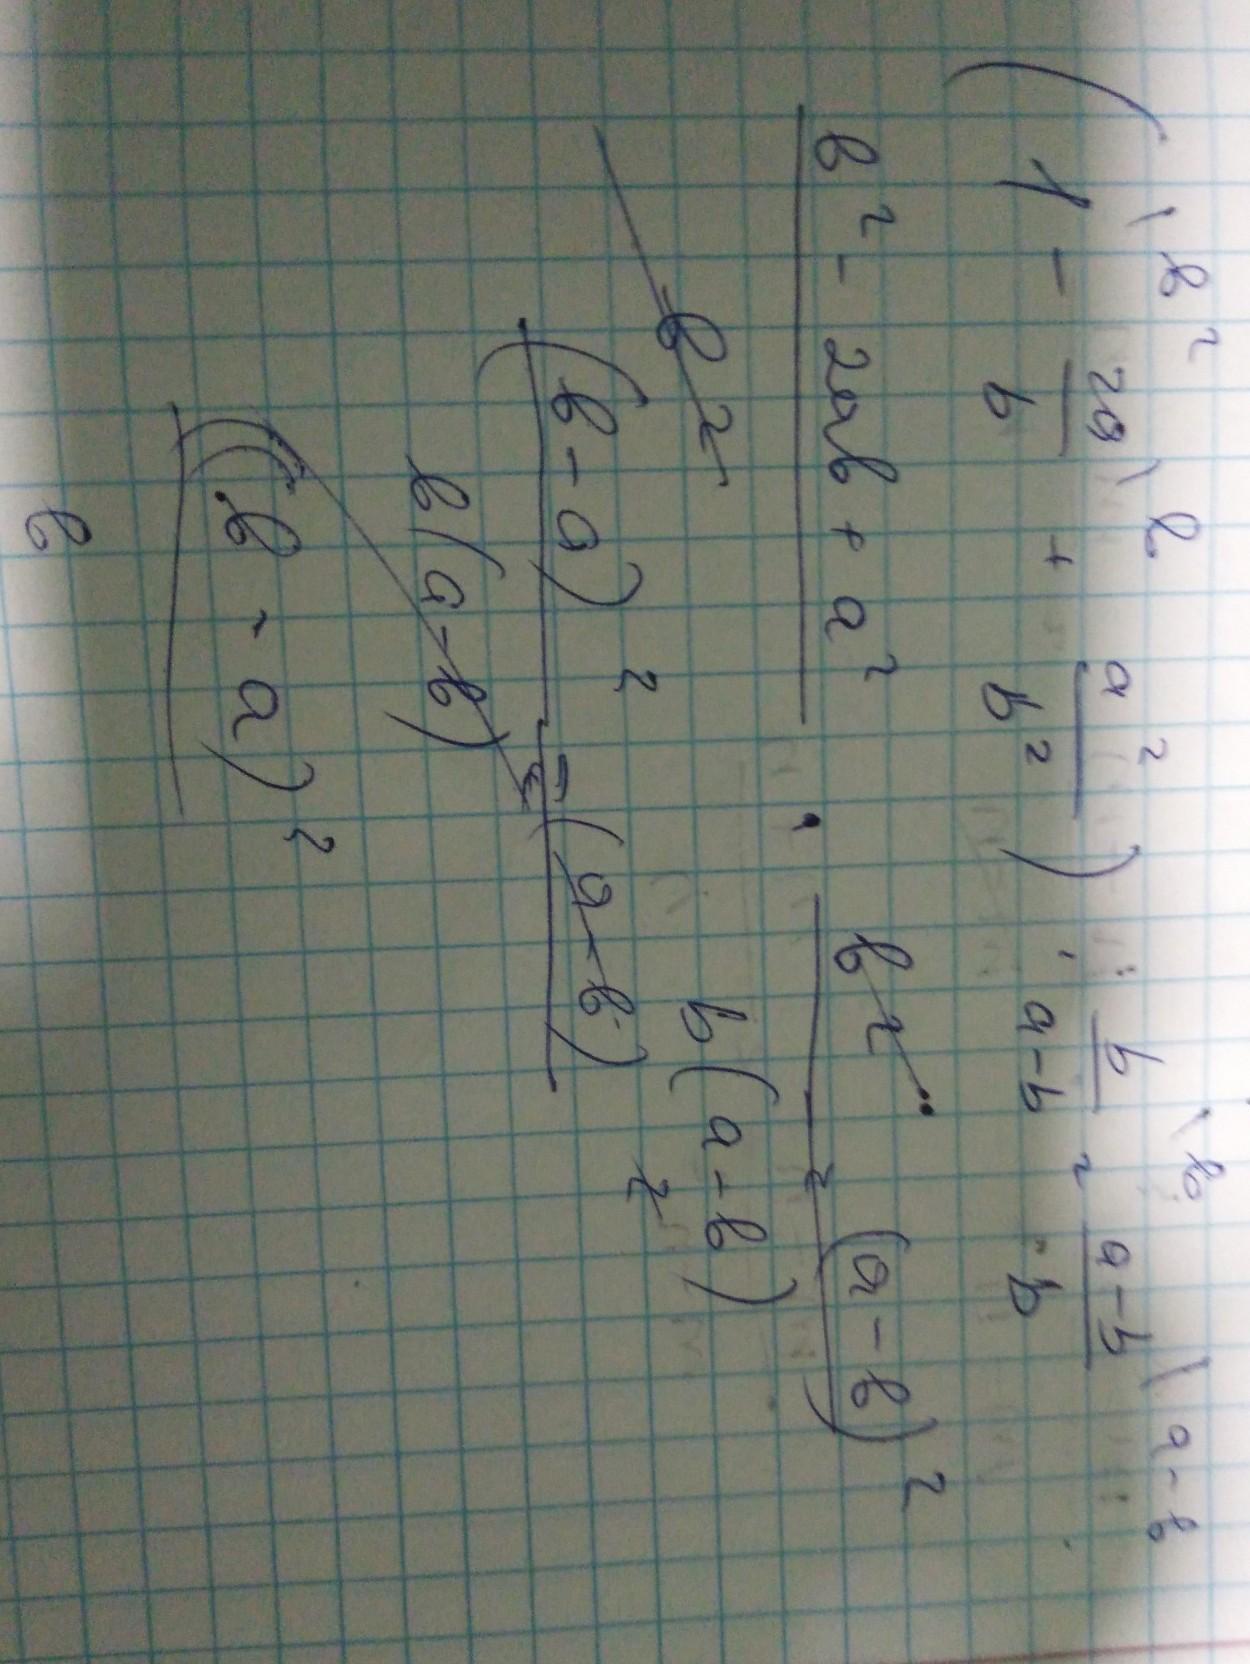 (1 \b² - 2a/b \b + a²/b²) · b/a-b \b = a-b/b \a-b
b² - 2ab + a² / b² · b² / b(a-b) = (a-b)²
(b-a)² / b(a-b) = (a-b)
(b-a)² / b